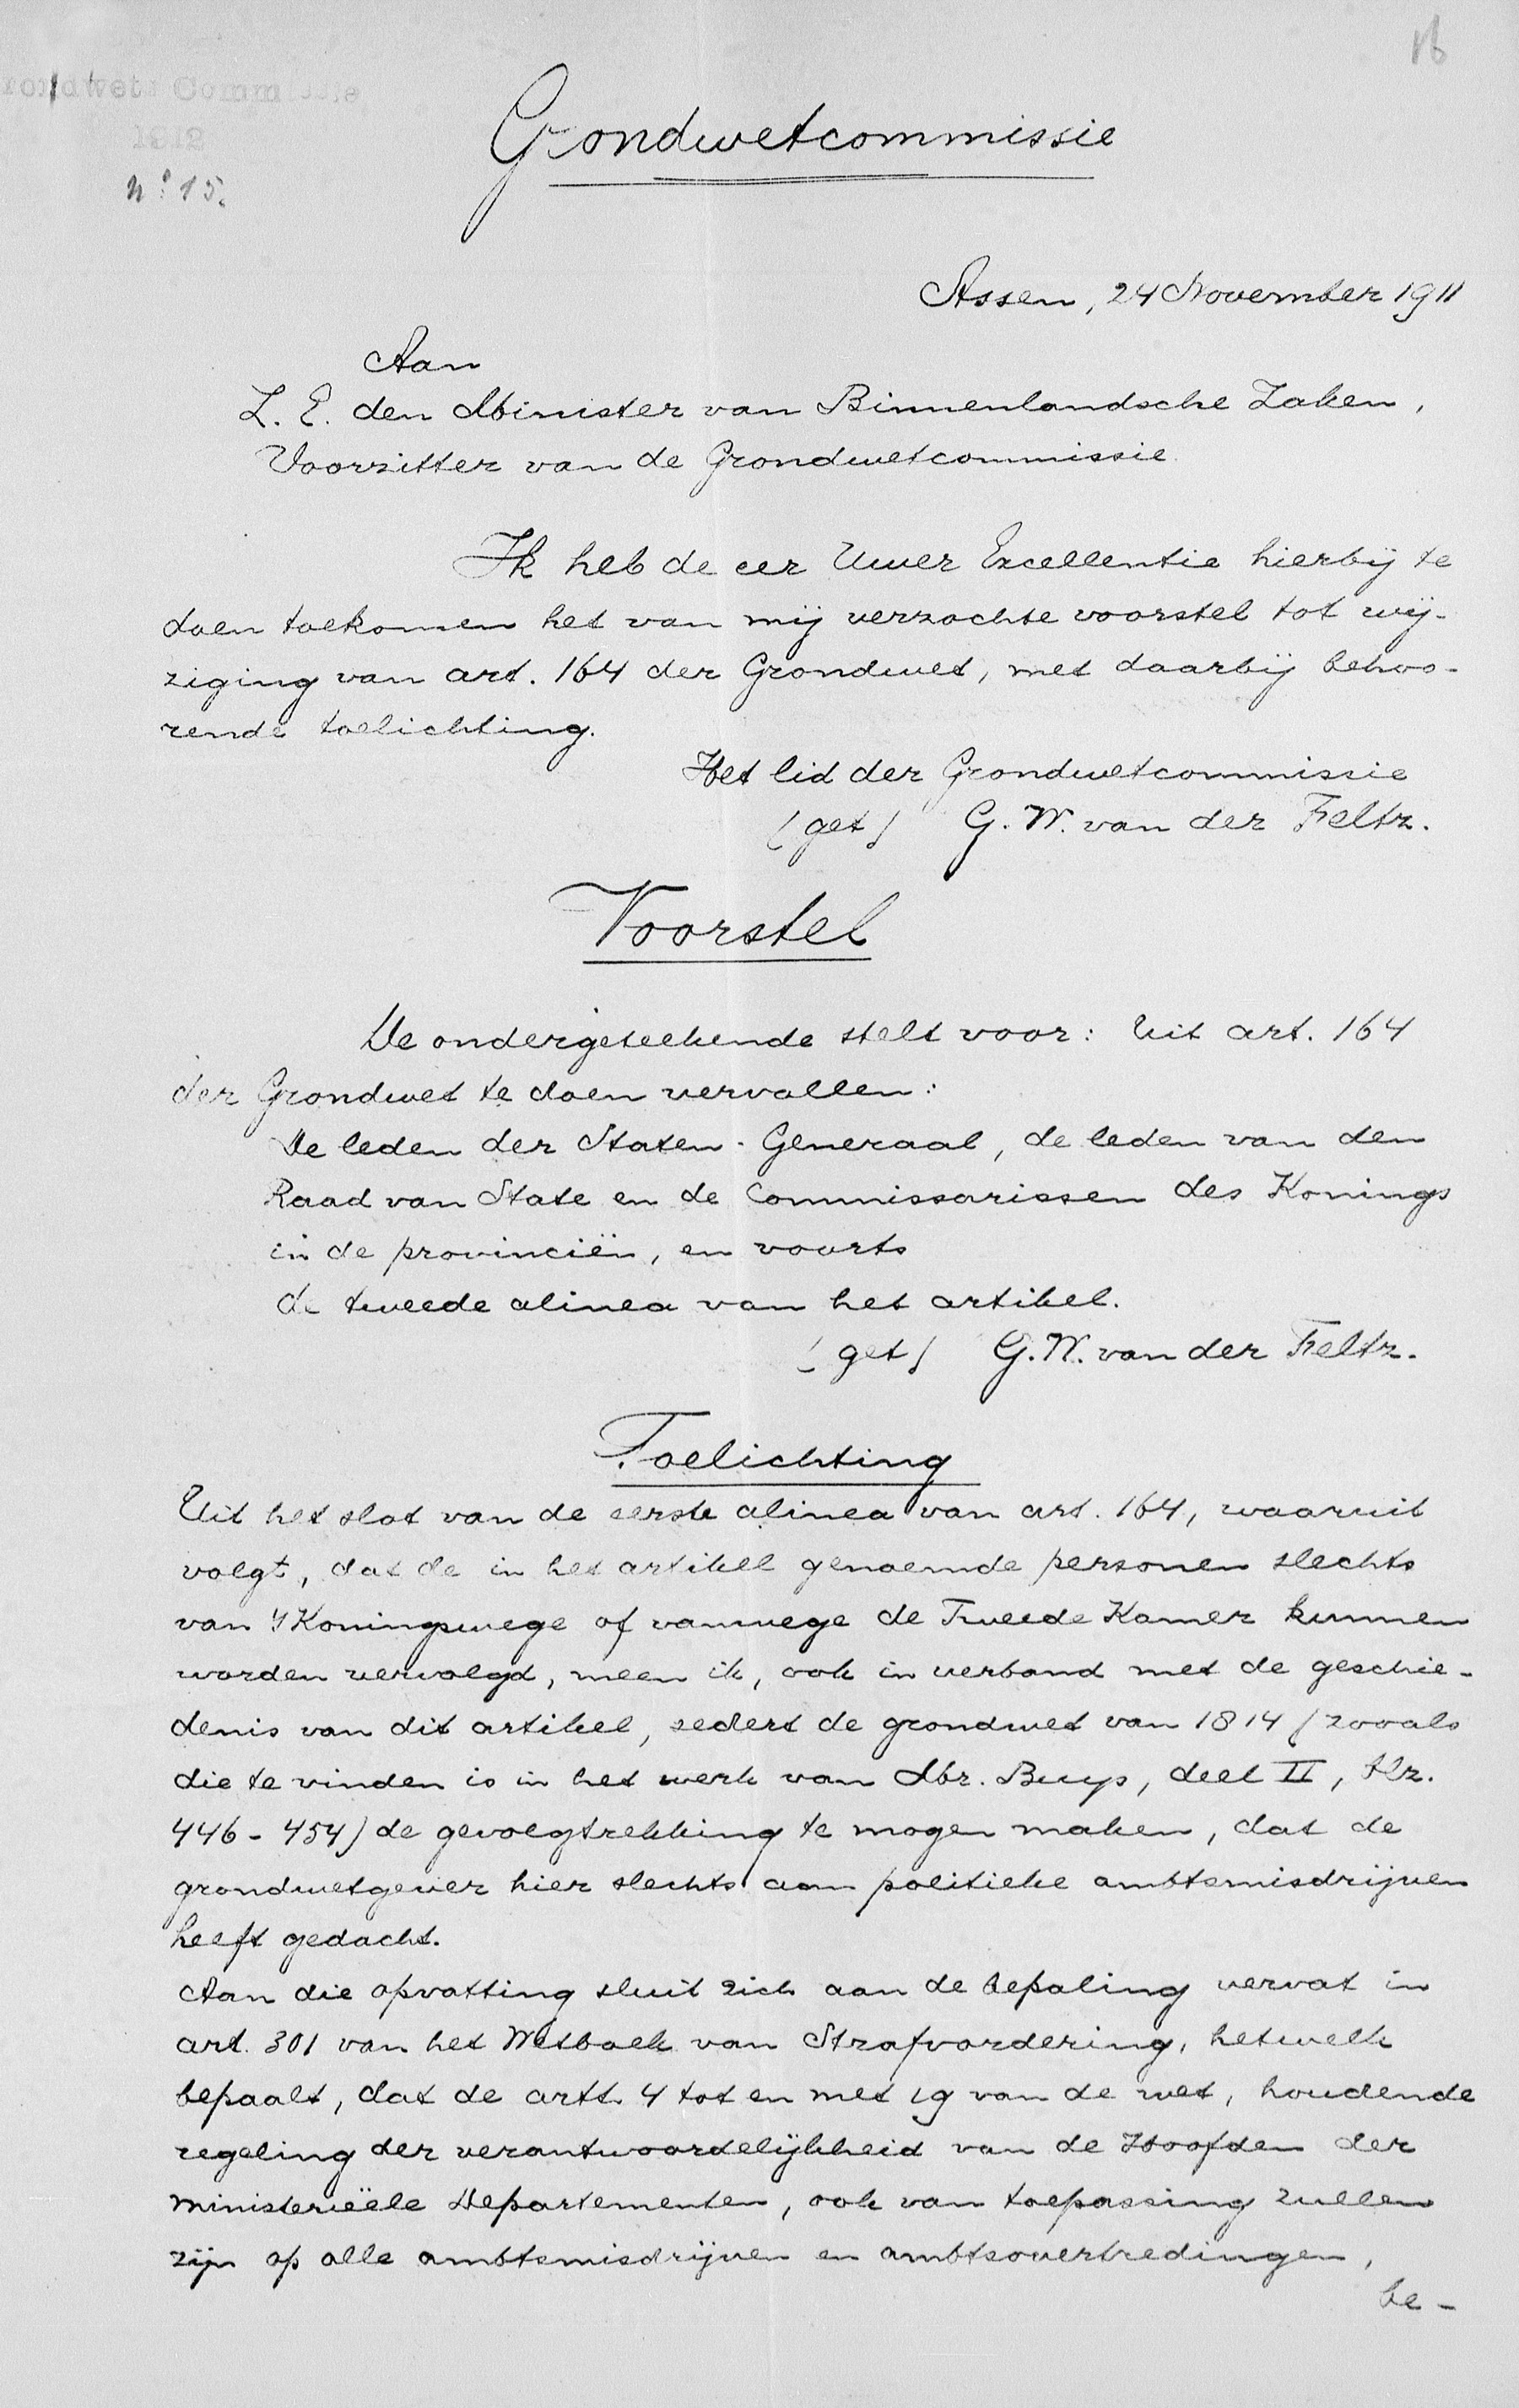 16
Grondwets Commissie
1912
No. 15.
Grondwetcommissie
Assen, 24 November 1911
Aan
Z. E. den Minister van Binnenlandsche Zaken,
Voorzitter van de Grondwetcommissie
Ik heb de eer Uwer Excellentie hierbij te
doen toekomen het van mij verzochte voorstel tot wij-
ziging van art. 164 der Grondwet, met daarbij behoo-
rende toelichting.
Het lid der Grondwetcommissie
(get) G. W. van der Feltz.
Voorstel
De ondergeteekende stelt voor: Uit art. 164
der Grondwet te doen vervallen:
De leden der Staten-Generaal, de leden van den
Raad van State en de Commissarissen des Konings
in de provinciën, en voorts
de tweede alinea van het artikel.
(get) G. W. van der Feltz.
Toelichting
Uit het slot van de eerste alinea van art. 164, waaruit
volgt, dat de in het artikel genoemde personen slechts
van 's Koningswege of vanwege de Tweede Kamer kunnen
worden vervolgd, meen ik, ook in verband met de geschie-
denis van dit artikel, sedert de grondwet van 1814 (zooals
die te vinden is in het werk van Mr. Buys, deel II, blz.
446-454) de gevolgtrekking te mogen maken, dat de
grondwetgever hier slechts aan politieke ambtsmisdrijven
heeft gedacht.
Aan die opvatting sluit zich aan de bepaling vervat in
art. 301 van het Wetboek van Strafvordering, hetwelk
bepaalt, dat de artt. 4 tot en met 19 van de wet, houdende
regeling der verantwoordelijkheid van de Hoofden der
Ministerieële Departementen, ook van toepassing zullen
zijn op alle ambtsmisdrijven en ambtsovertredingen,
be-